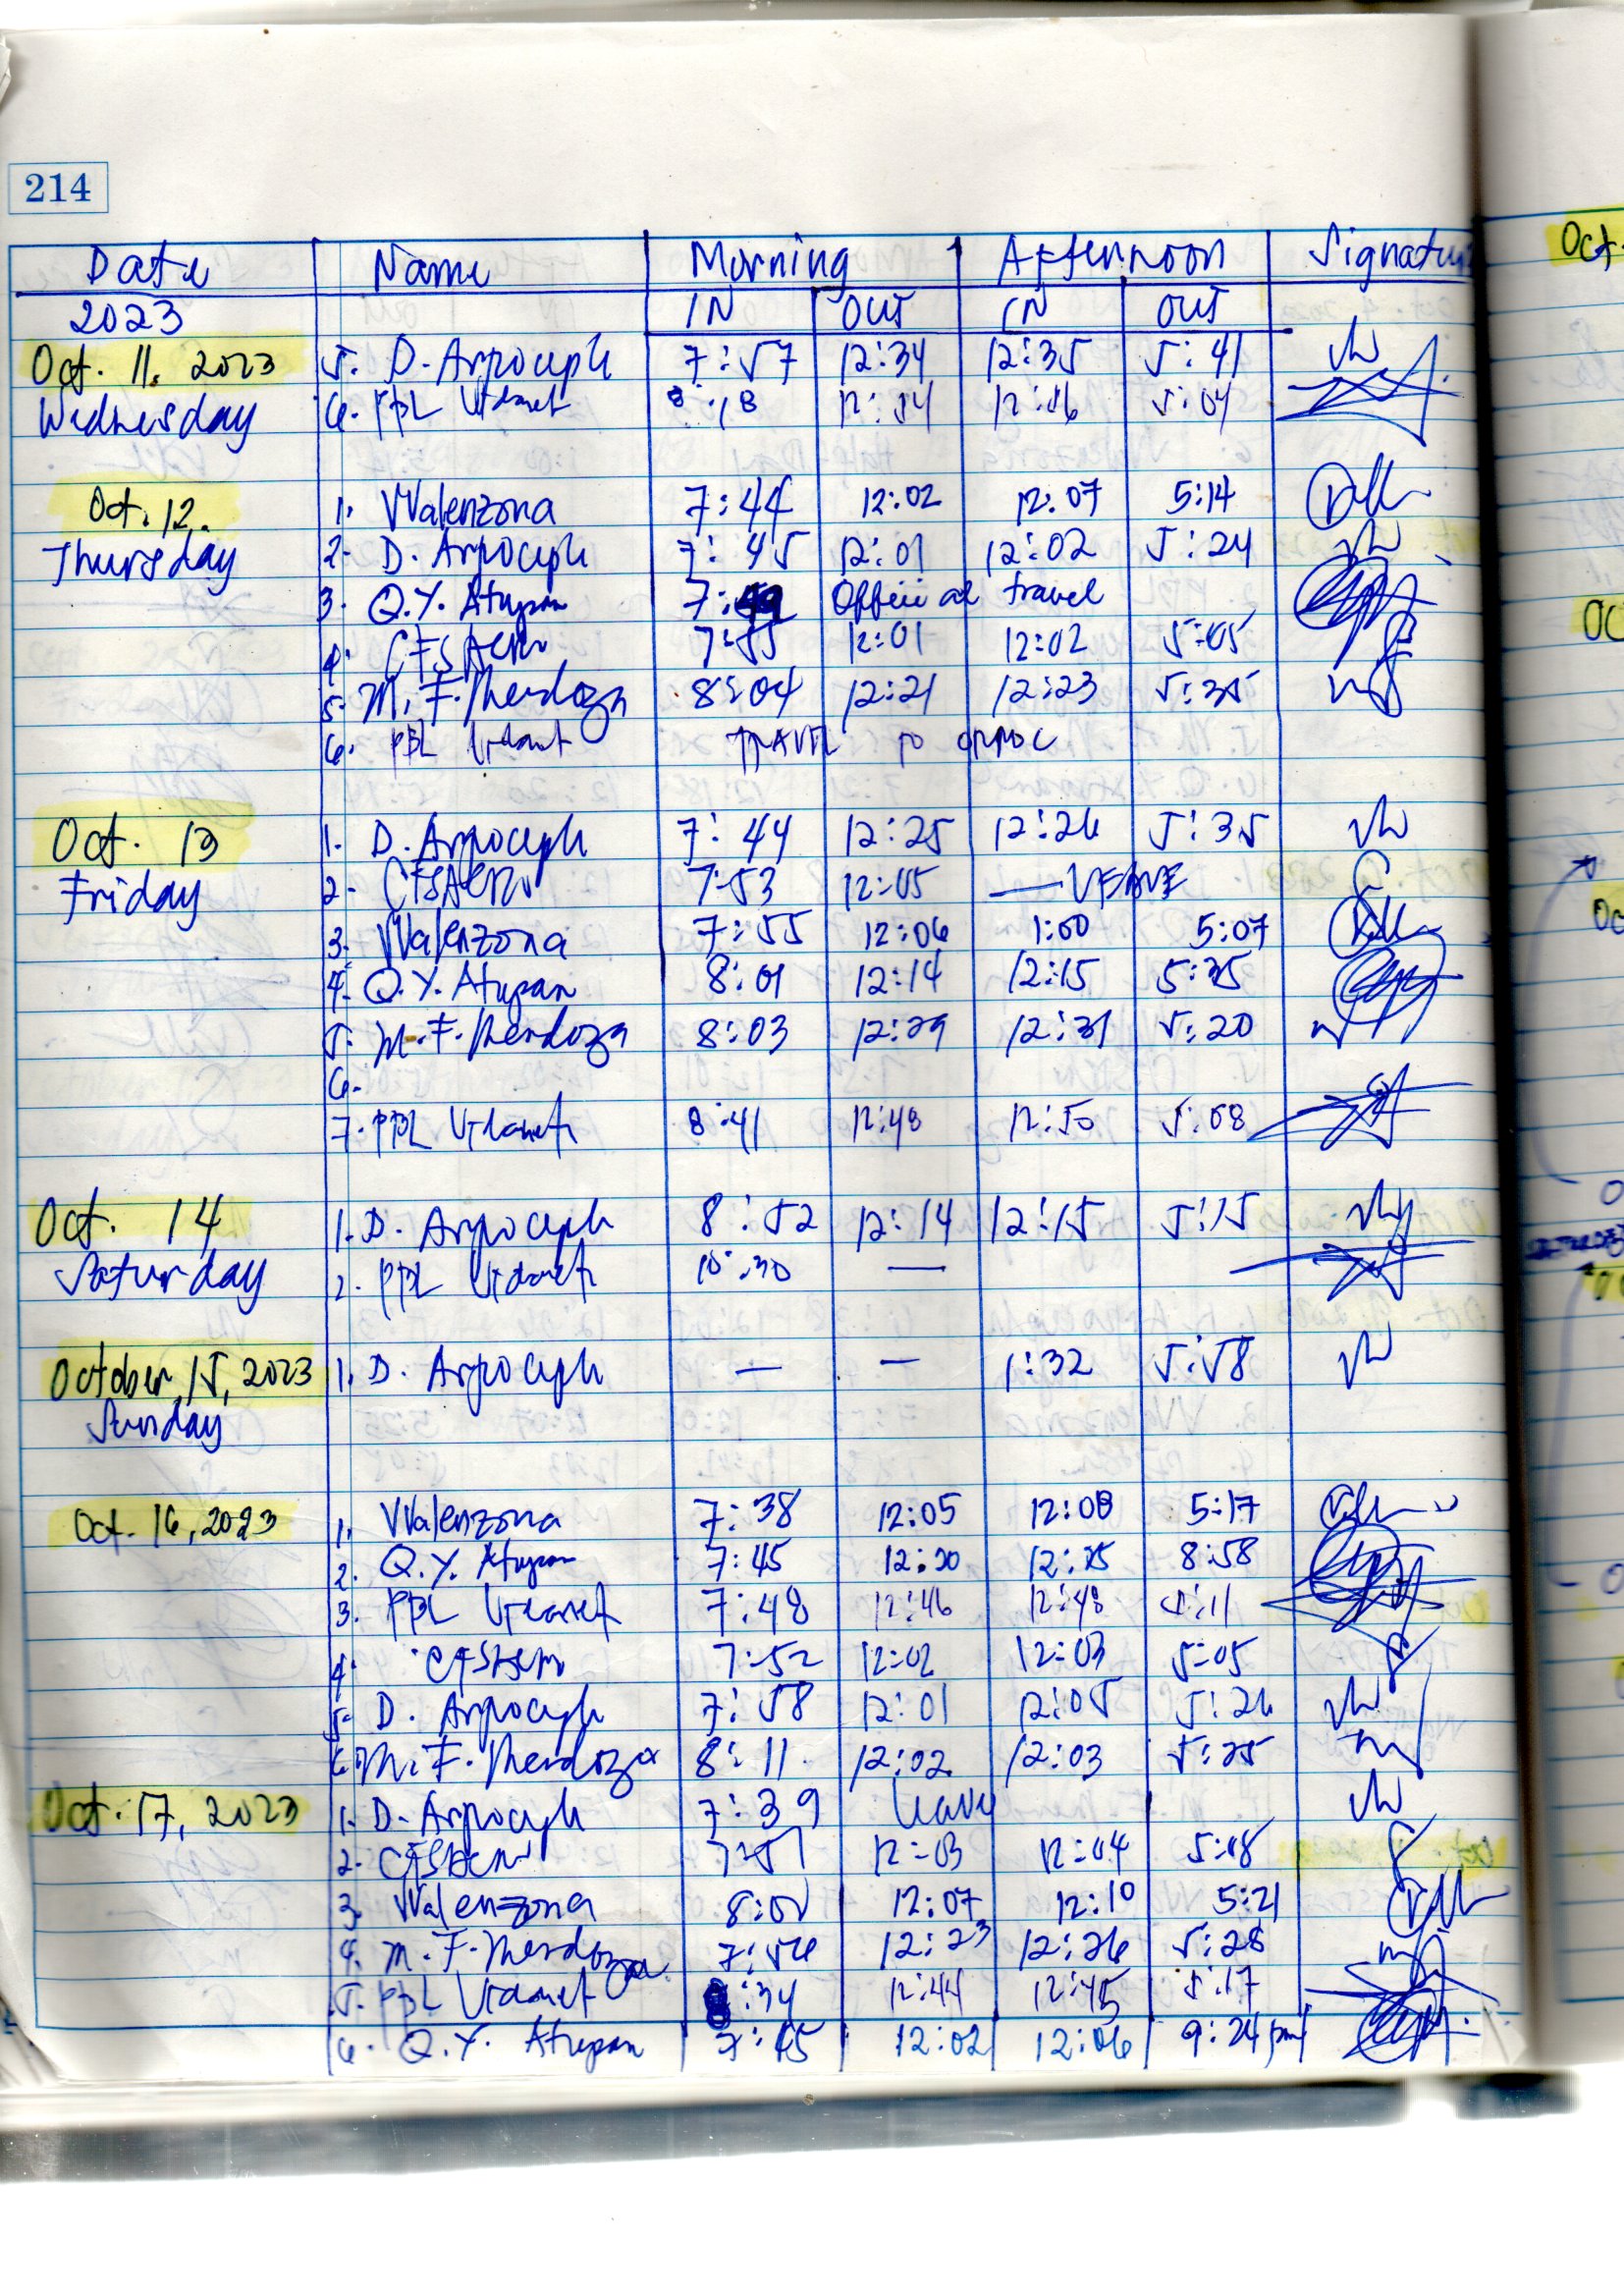 214
Date Name Morning Afternoon Signatur
2023 IN OUT IN OUT
Oct. 11, 2023 5. D. 7:57 12:34 12:35 5:41
Wednesday 6. PBL 8:18 12:54 12:56 5:04
Oct. 12. 1. VValenzona 7:44 12:02 12:07 5:14
Thursday 2. D. 7:45 12:01 12:02 5:24
3. Q.Y. Atupan 7: Official travel
4. 7:55 12:01 12:02 5:05
5. M. F. Mendoza 8:04 12:21 12:23 5:35
6. PBL TRAVEL TO ORMOC
Oct. 13 1. D. 7:44 12:25 12:26 5:35
Friday 2. 7:53 12:05 — LEAVE
3. VValenzona 7:55 12:06 1:00 5:07
4. Q.Y. Atupan 8:01 12:14 12:15 5:35
5. M. F. Mendoza 8:03 12:29 12:31 5:20
6.
7. PBL 8:41 12:48 12:50 5:08
Oct. 14 1. D. 8:52 12:14 12:15 5:15
Saturday 2. PBL 10:30 —
October 15, 2023 1. D. — — 1:32 5:58
Sunday
Oct. 16, 2023 1. VValenzona 7:38 12:05 12:08 5:17
2. Q.Y. Atupan 7:45 12:20 12:25 8:58
3. PBL 7:48 12:46 12:48 5:11
4. 7:52 12:02 12:03 5:05
5. D. 7:58 12:01 12:05 5:26
6. M. F. Mendoza 8:11 12:02 12:03 5:25
Oct. 17, 2023 1. D. 7:39 leave
2. 7:51 12:03 12:04 5:08
3. VValenzona 8:01 12:07 12:10 5:21
4. M. F. Mendoza 7:56 12:23 12:26 5:28
5. PBL 8:34 12:44 12:45 5:17
6. Q.Y. Atupan 7:45 12:02 12:06 9:24 pm